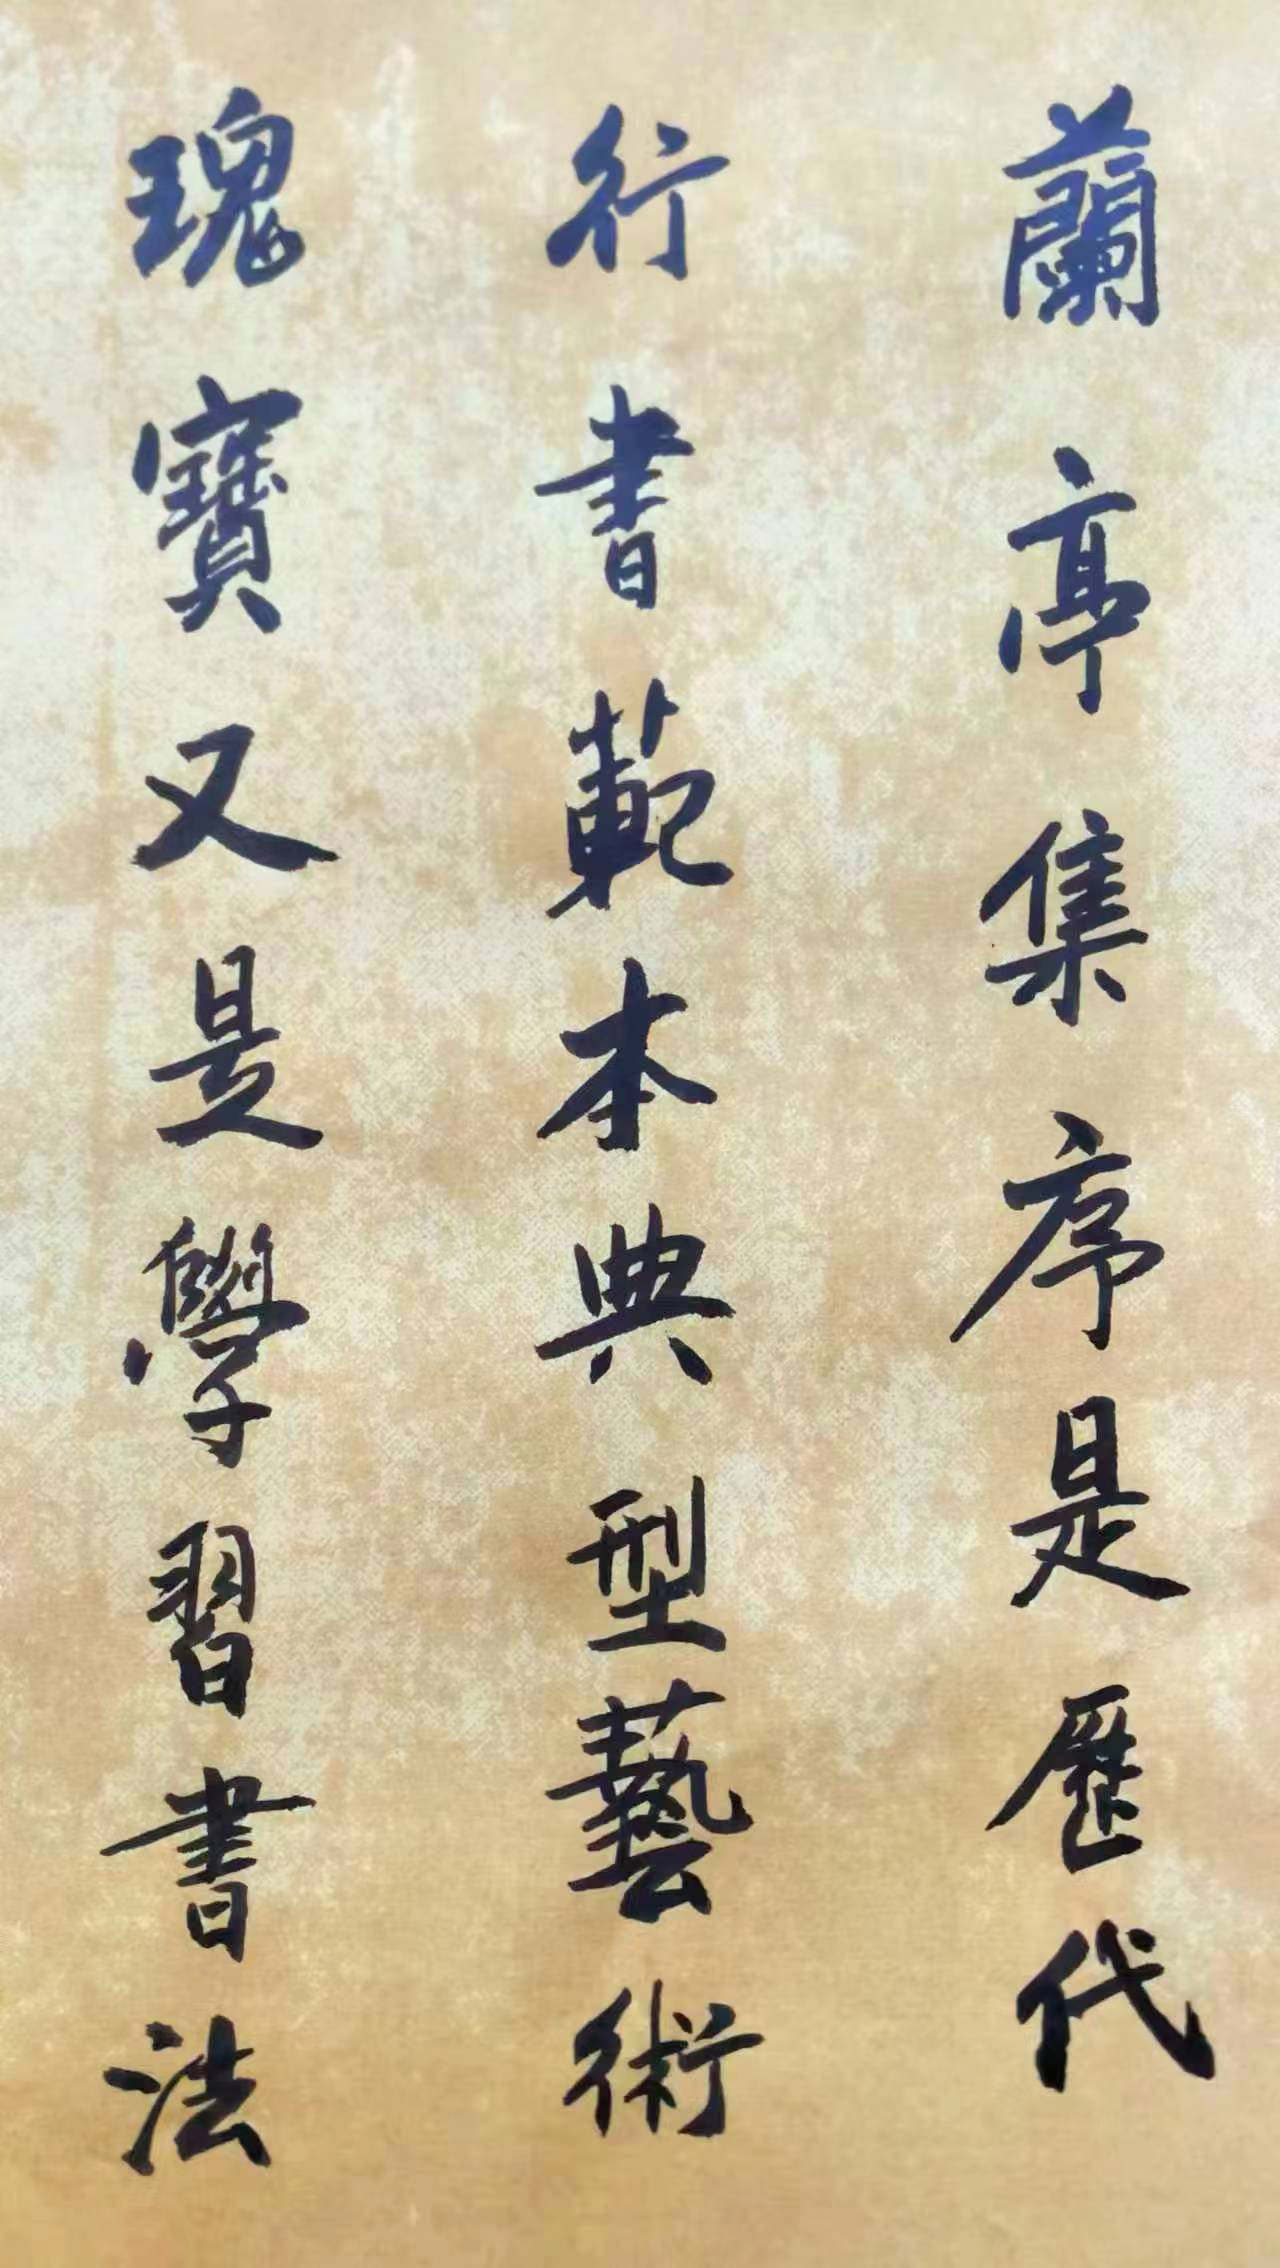 蘭亭集序是歷代
行書範本典型藝術
瑰寶又是學習書法